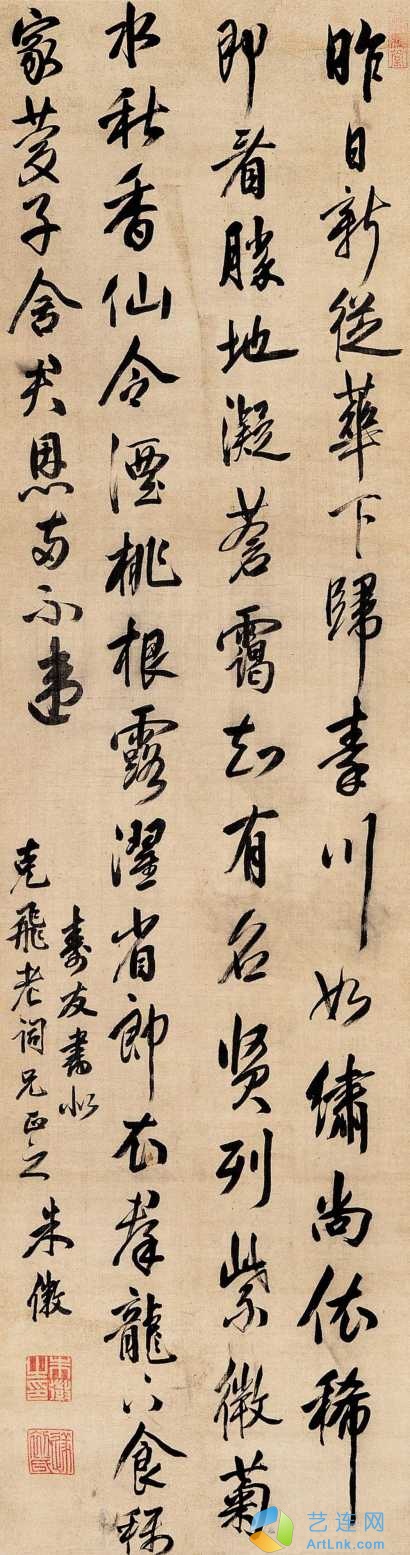 昨日新從華下歸秦川如繡尚依稀
即看勝地凝蒼靄知有名賢列紫微菊
水秋香仙令酒桃根露濯省郎衣龍食稱
家慶子舍君恩兩不違
壽友書似
克飛老詞兄正之 朱徽
艺连网
ArtLnk.com